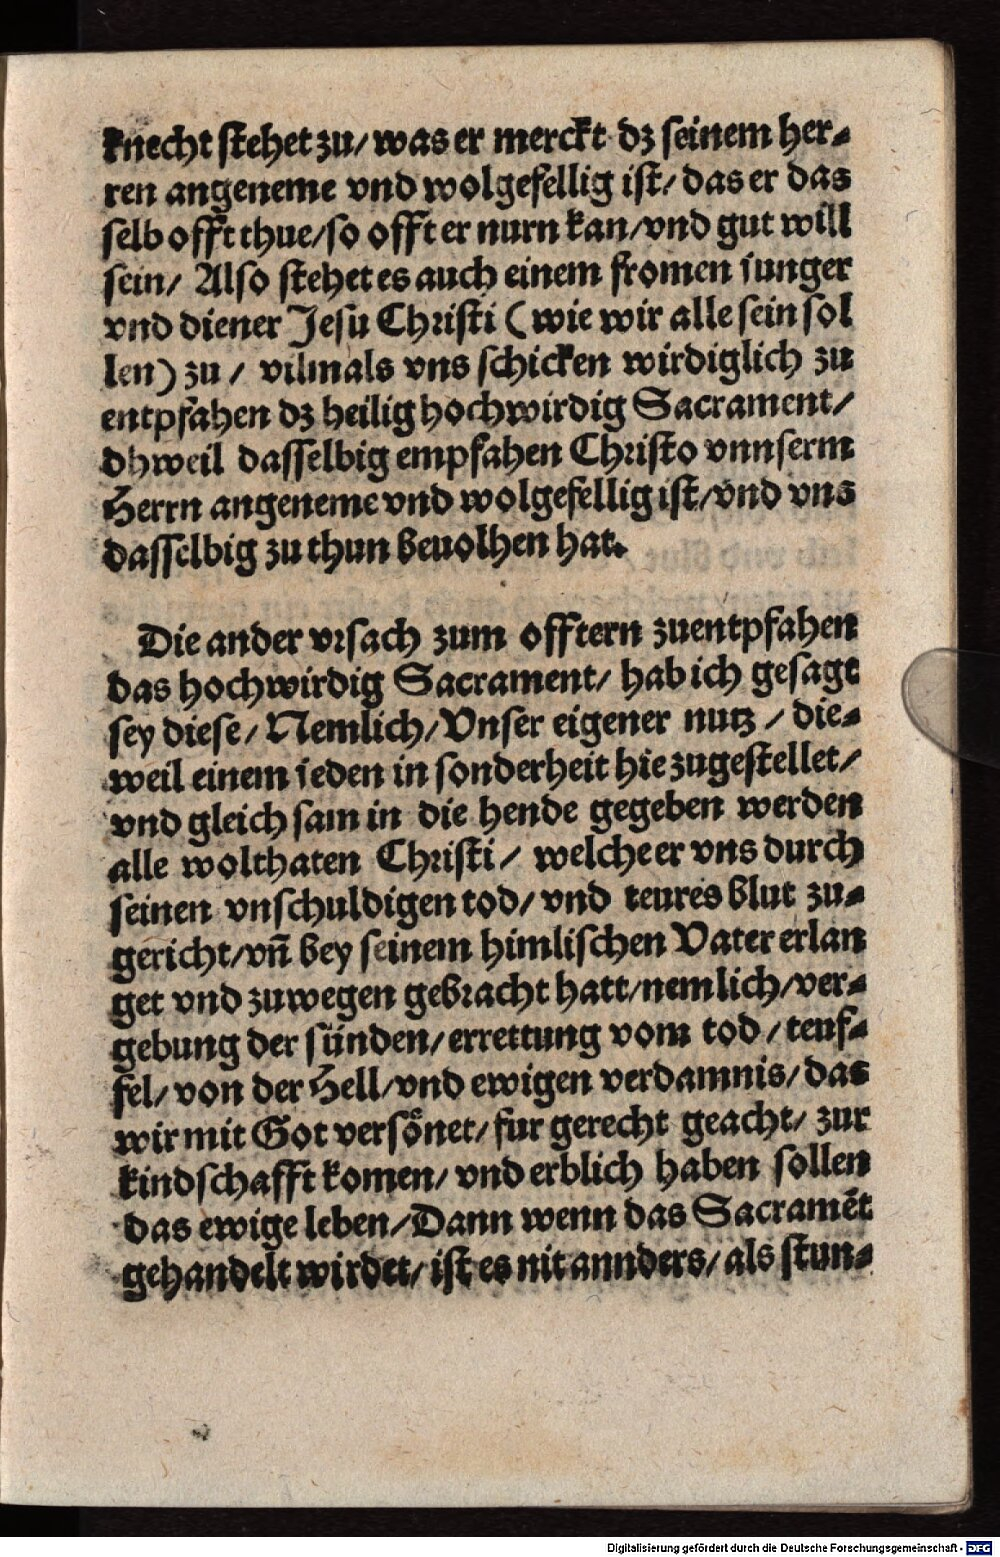 knecht stehet zu/ was er merckt dz seinem her-
ren angeneme vnd wolgefellig ist/ das er das
selb offt thue/ so offt er nurn kan/ vnd gut will
sein/ Also stehet es auch einem fromen iunger
vnd diener Jesu Christi (wie wir alle sein sol
len) zu/ vilmals vns schicken wirdiglich zu
entpfahen dz heilig hochwirdig Sacrament/
dhweil dasselbig empfahen Christo vnnserm
Herrn angeneme vnd wolgefellig ist/ vnd vns
dasselbig zu thun beuolhen hat.
Die ander vrsach zum offtern zuentpfahen
das hochwirdig Sacrament/ hab ich gesagt
sey diese/ Nemlich/ Vnser eigener nutz/ die-
weil einem ieden in sonderheit hie zugestellet/
vnd gleich sam in die hende gegeben werden
alle wolthaten Christi/ welche er vns durch
seinen vnschuldigen tod/ vnd teures blut zu-
gericht/ vn̄ bey seinem himlischen Vater erlan
get vnd zuwegen gebracht hatt/ nemlich/ ver-
gebung der sünden/ errettung vom tod/ teuf-
fel/ von der Hell/ vnd ewigen verdamnis/ das
wir mit Got versönet/ fur gerecht geacht/ zur
kindschafft komen/ vnd erblich haben sollen
das ewige leben/ Dann wenn das Sacramēt
gehandelt wirdet/ ist es nit annders/ als stun-
Digitalisierung gefördert durch die Deutsche Forschungsgemeinschaft - DFG